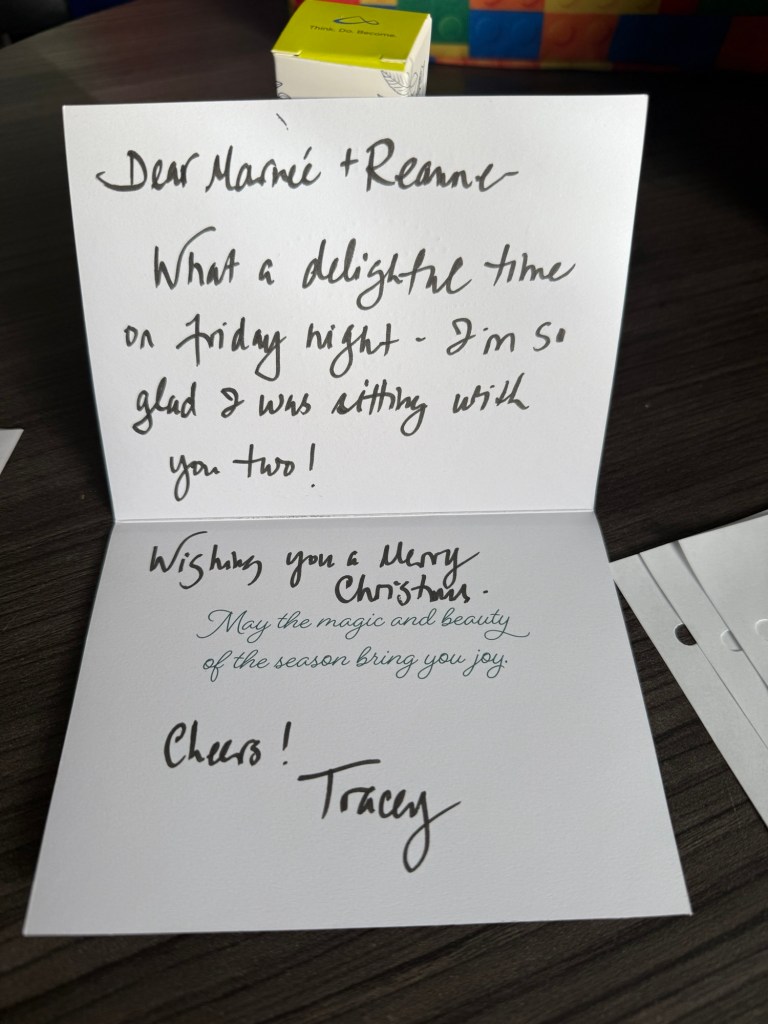 Think. Do. Become.
Dear Marneé + Reanne
What a delightful time
on friday night - I'm so
glad I was sitting with
you two!
Wishing you a Merry
Christmas.
May the magic and beauty
of the season bring you joy.
Cheers!
Tracey